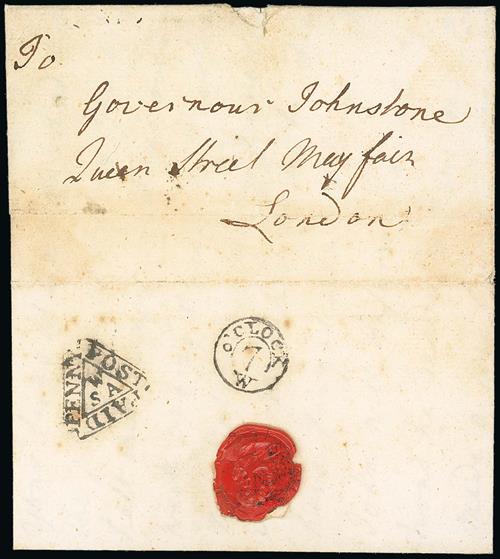 To
Governour Johnstone
Queen Street May fair
London
PENNY POST PAID
W
SA
O'CLOCK
7
W